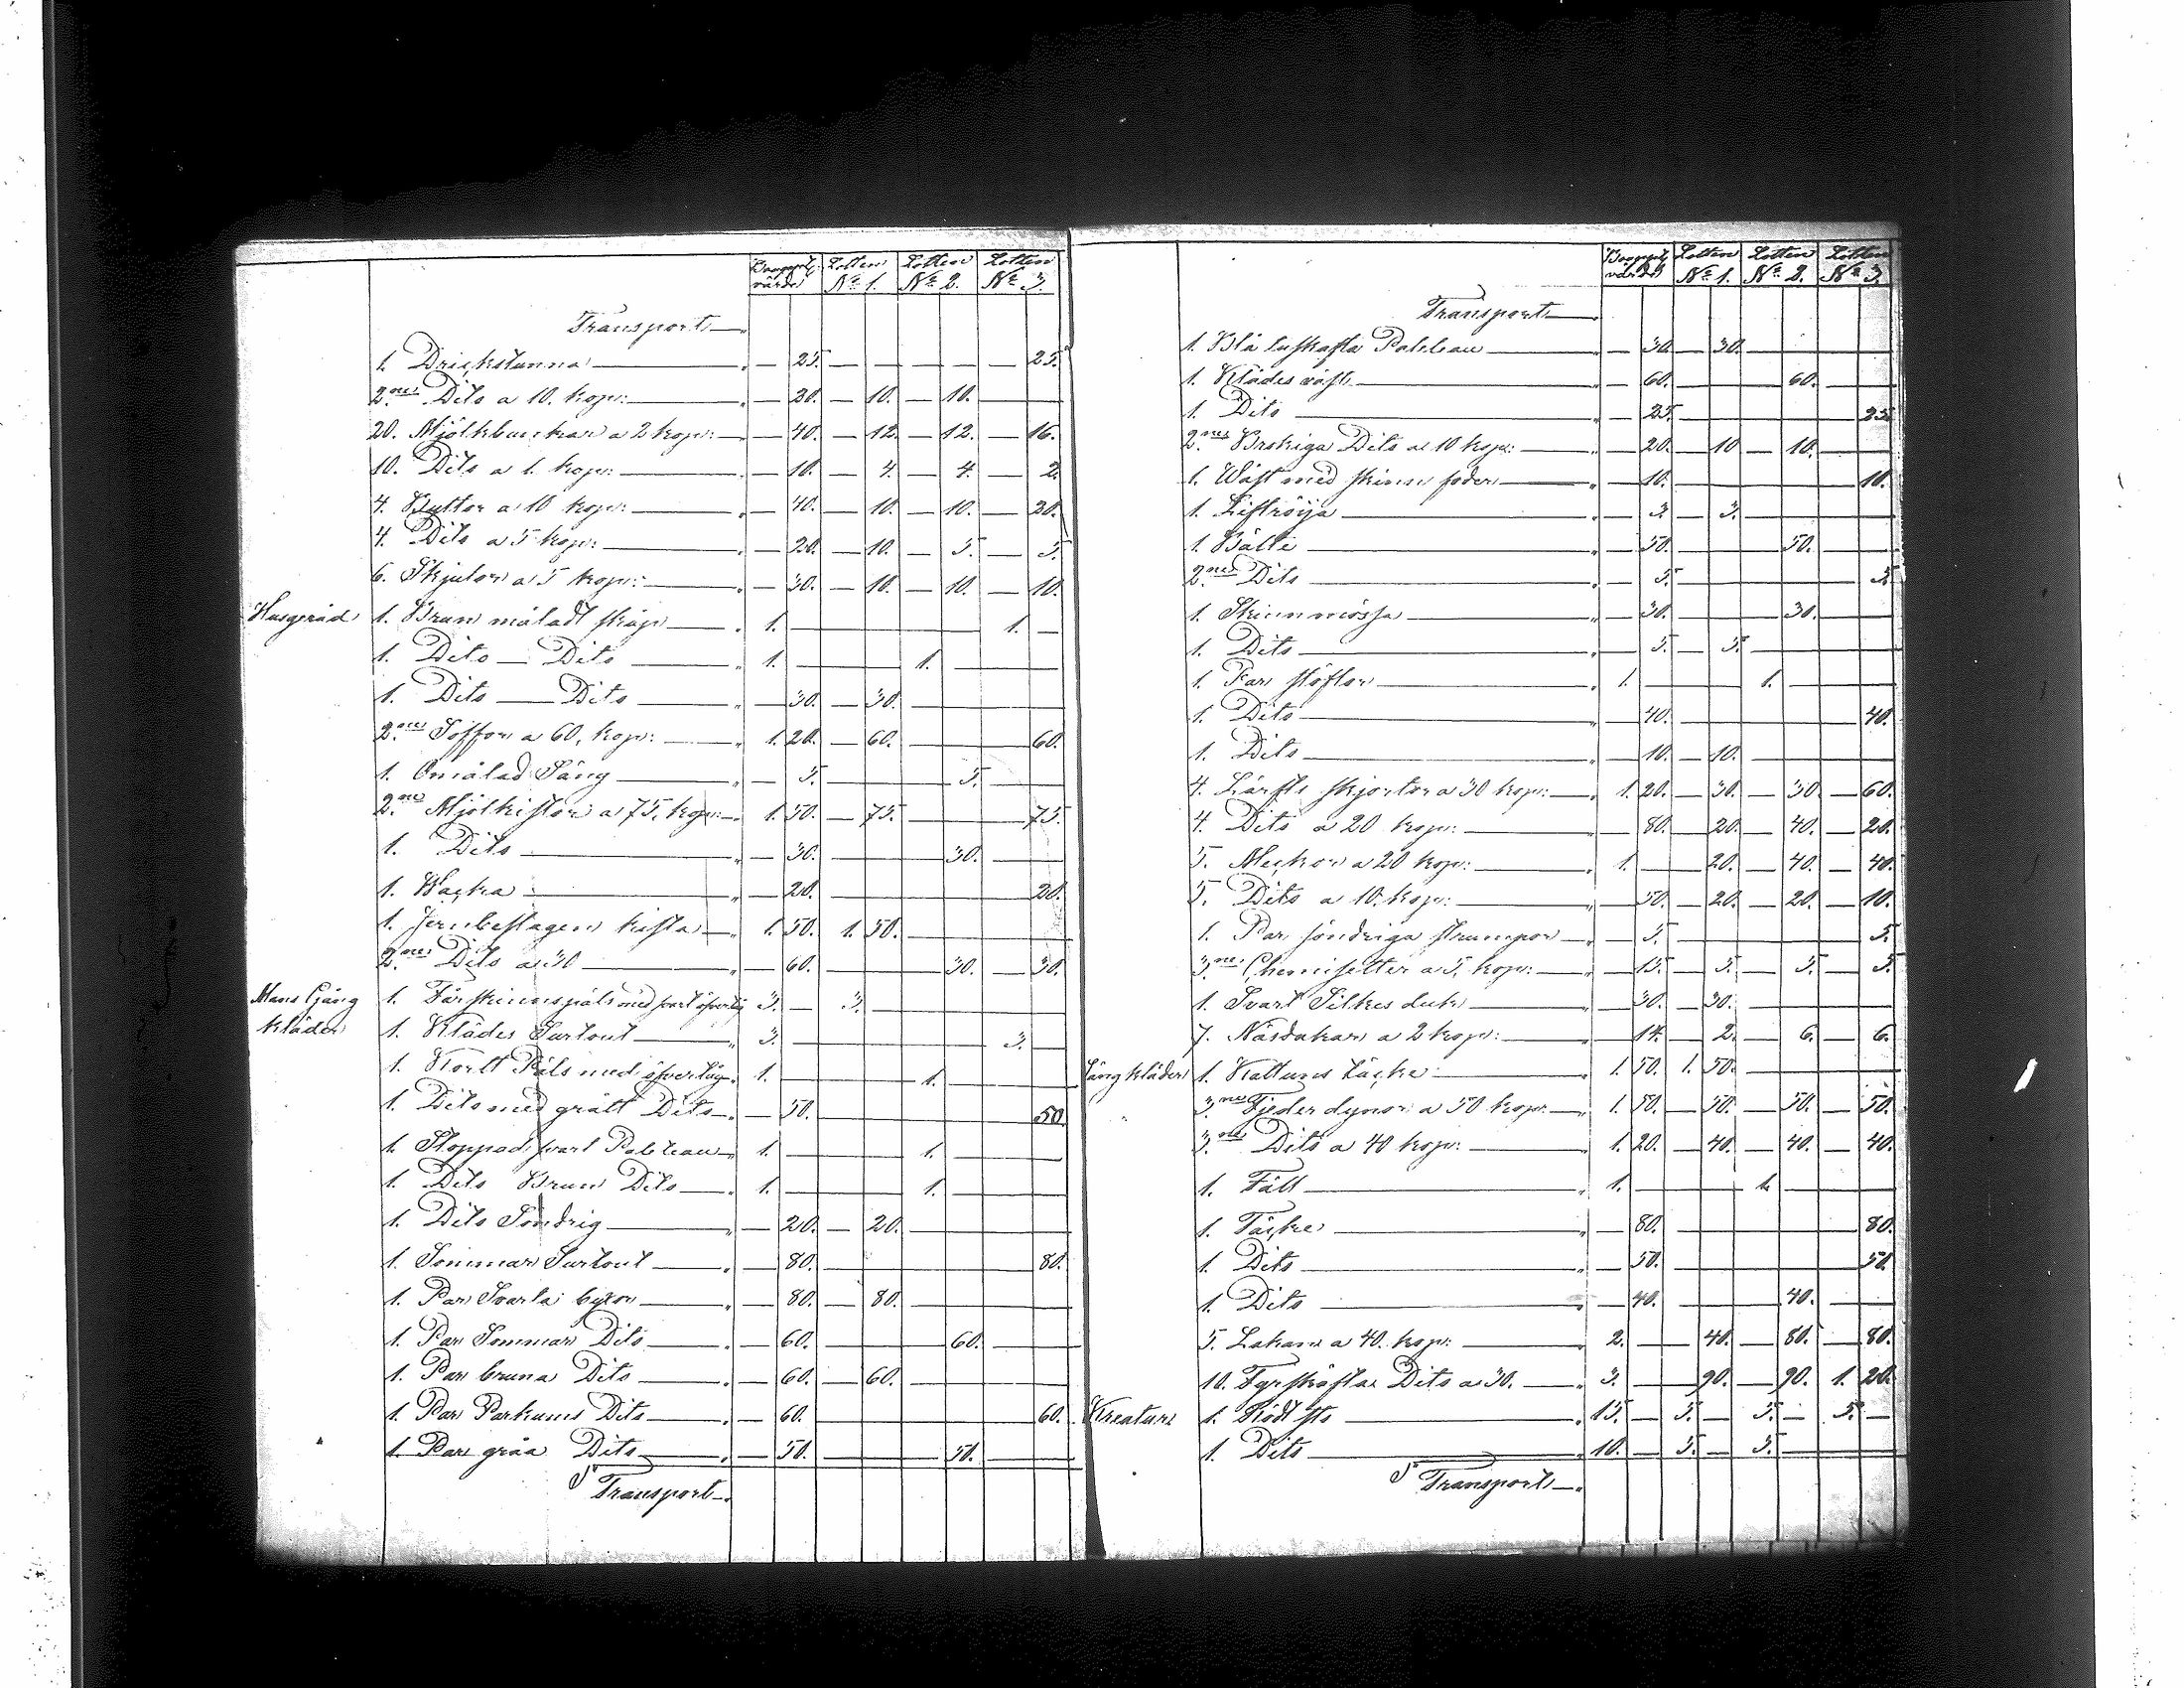 Lotten Lotten Lotten
värde No 1. No 2. No 3.
Transport
1. Drickstunna — 25. — — — — — 25.
2ne Dito a 10. kop: — 20. — 10. — 10.
20. Mjölkbunkar a 2 kop: — 40. — 12. — 12. — 16.
10. Dito a 1. kop: — 10. — 4. — 4. — 2.
4. Byttor a 10 kop: — 40. — 10. — 10. — 20.
4. Dito a 5 kop: — 20. — 10. — 5. — 5.
6. Skjutor a 5 kop: — 30. — 10. — 10. — 10.
Husgeråd 1. Brun måladt skåp 1. — 1. —
1. Dito — Dito 1. — 1. —
1. Dito — Dito — 30. — 30.
2ne Soffor a 60, kop: 1. 20. — 60. — 60.
1. Omålad Säng — 5. — 5.
2ne Mjölkistor a 75, kop: 1. 50. — 75. — 75.
1. Dito — 30. — 30.
1. Wacka — 20. — 20.
1. Jernbeslagen kista 1. 50. 1. 50.
2ne Dito a 30 — 60. — 30. — 30.
Mans Gång 1. Fårskinnspäls med svart öfvertyg 3. — 3.
kläder 1. Klädes Surtout 3. — 3. —
1. Kortt Päls med öfvertyg 1. — 1.
1. Dito med grått Dito — 50. — 50.
1. Stoppad svart Paletau 1. — 1.
1. Dito Brun Dito 1. — 1.
1. Dito Söndrig — 20. — 20.
1. Sommar Surtout — 80. — 80.
1. Par Svarta byxor — 80. — 80.
1. Par Sommar Dito — 60. — 60.
1. Par bruna Dito — 60. — 60.
1. Par Parkums Dito — 60. — 60.
1. Par gråa Dito — 50. — 50.
Transport
Lotten Lotten Lotten
värde No 1. No 2. No 3.
Transport
1. Blå Paletau — 30. — 30.
1. Klädes väst — 60. — 60.
1. Dito — 25. — 25.
2ne Brokiga Dito a 10 kop: — 20. — 10 — 10.
1. Wäst med skinn foder — 10. — 10.
1. Liftröja — 3. — 3.
1. Bälte — 50. — 50.
2ne Dito — 5. — 5.
1. Skinnmössa — 30. — 30.
1. Dito — 5. — 5.
1. Par stöflor 1. — 1.
1. Dito — 40. — 40.
1. Dito — 10. — 10.
4. Lärfts skjortor a 30 kop: 1. 20. — 30. — 30. — 60.
4. Dito a 20 kop: — 80. — 20. — 40. — 20.
5. a 20 kop: 1. — 20. — 40. — 40.
5. Dito a 10. kop: — 50. — 20. — 20. — 10.
1. Par söndriga strumpor — 5. — 5.
3ne Chemisetter a 5. kop: — 15. — 5. — 5. — 5.
1. Svart Silkes duk — 30. — 30.
7. Näsdukar a 2 kop: — 14. — 2. — 6. — 6.
Säng kläder 1. Kattuns täcke 1. 50. 1. 50.
3ne Fjeder dynor a 50 kop: 1. 50. — 50. — 50. — 50.
3ne Dito a 40 kop: 1. 20. — 40. — 40. — 40.
1. Fäll 1. — 1.
1. Täcke — 80. — 80.
1. Dito — 50. — 50.
1. Dito — 40. — 40.
5. Lakan a 40. kop: 2. — 40. — 80. — 80.
10. Fyrskäftas Dito a 30. 3. — 90. — 90. 1. 20.
Kreatur 1. Rödt sto 15. — 5. — 5. — 5. —
1. Dito 10. — 5. — 5.
Transport